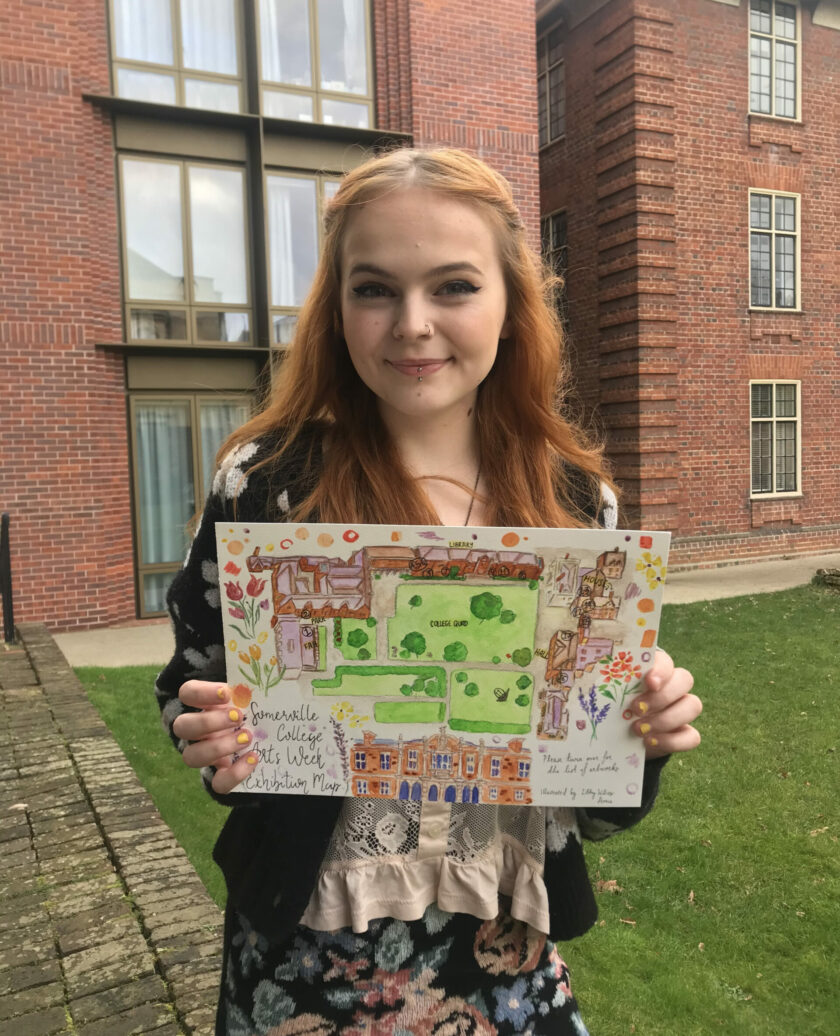 LIBRARY
HOUSE
COLLEGE QUAD
PARK
HALL
Somerville
College
Arts Week
Exhibition Map
Please turn over for
the list of artworks
Illustrated by Libby